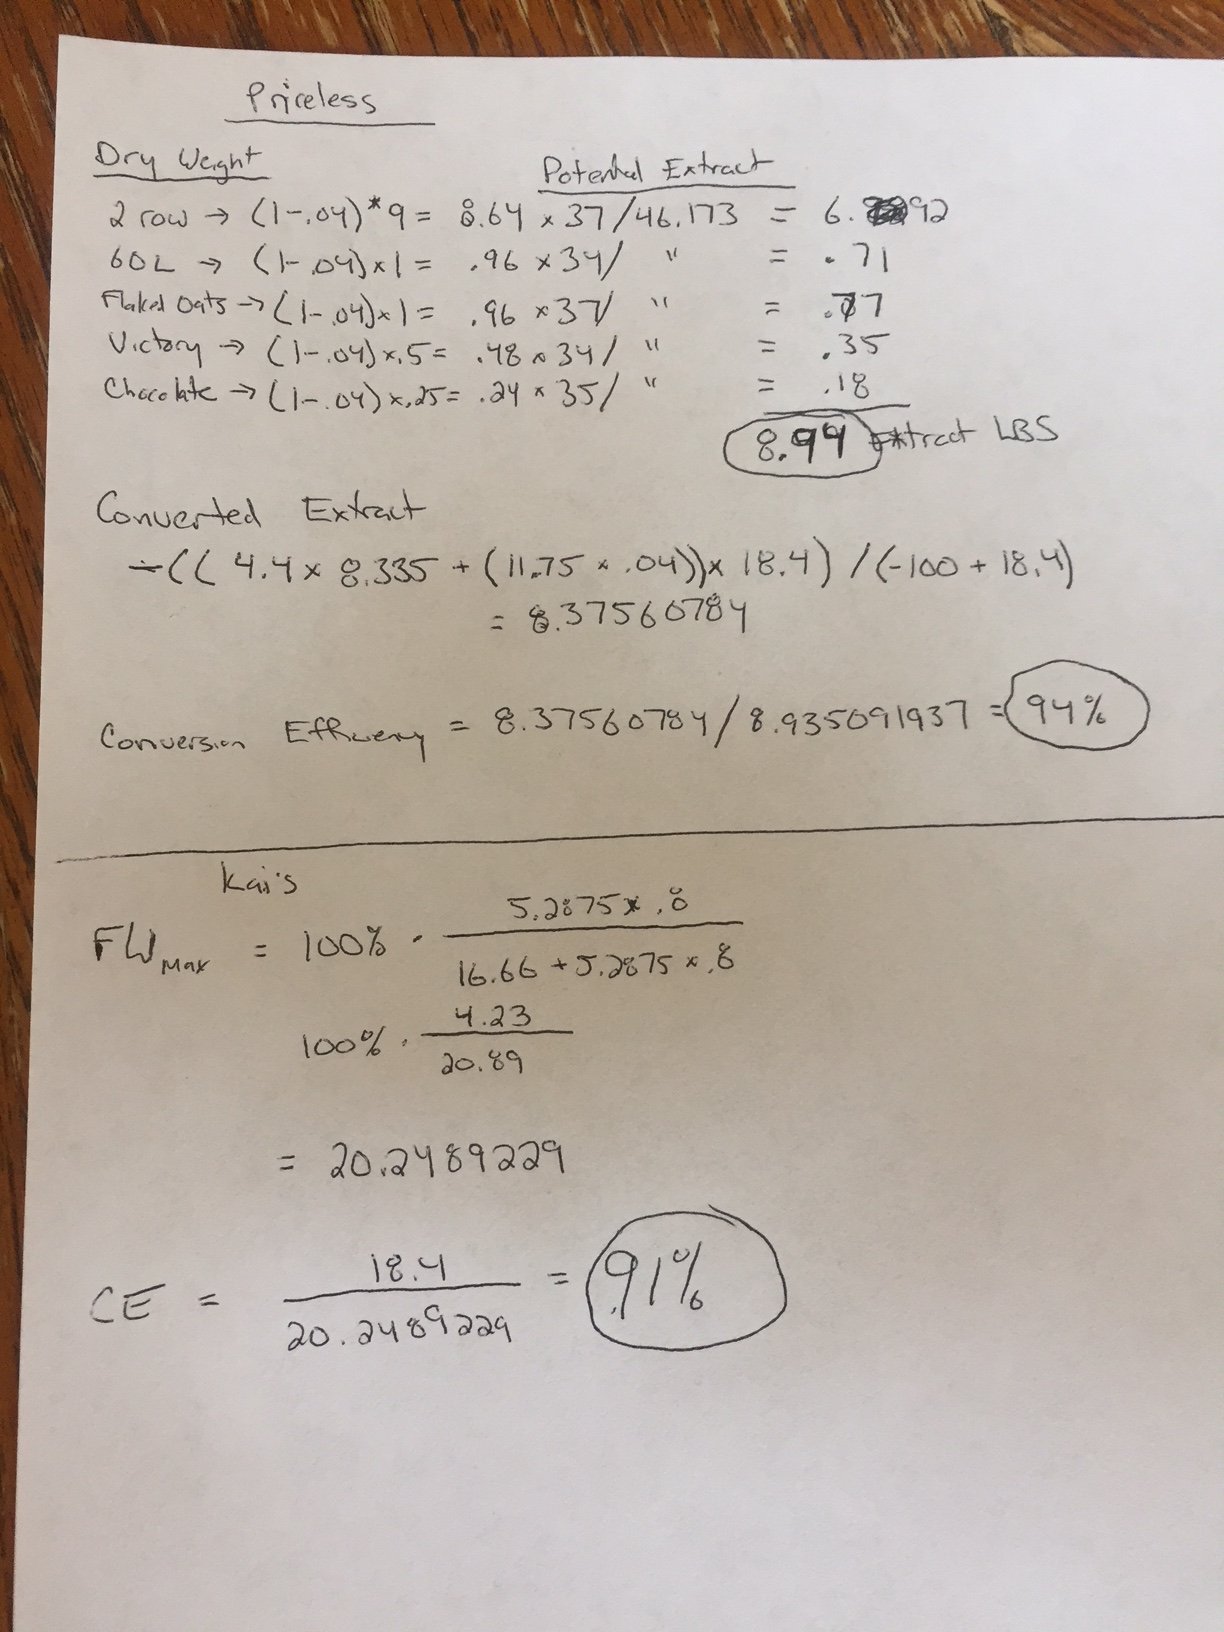 Priceless
Dry Weight Potential Extract
2 row → (1-.04)*9 = 8.64 x 37/46.173 = 6.92
60L → (1-.04)x1 = .96 x 34/ " = .71
Flaked Oats → (1-.04)x1 = .96 x 37/ " = .77
Victory → (1-.04)x.5 = .48 x 34/ " = .35
Chocolate → (1-.04)x.25 = .24 x 35/ " = .18
8.94 Extract LBS
Converted Extract
-((4.4 x 8.335 + (11.75 x .04)) x 18.4) / (-100 + 18.4)
= 8.37560784
Conversion Efficiency = 8.37560784/8.935091937 = 94%
Kai's
FW Max = 100% · 5.2875 x .8
16.66 + 5.2875 x .8
100% · 4.23
20.89
= 20.2489229
CE = 18.4 = .91%
20.2489229